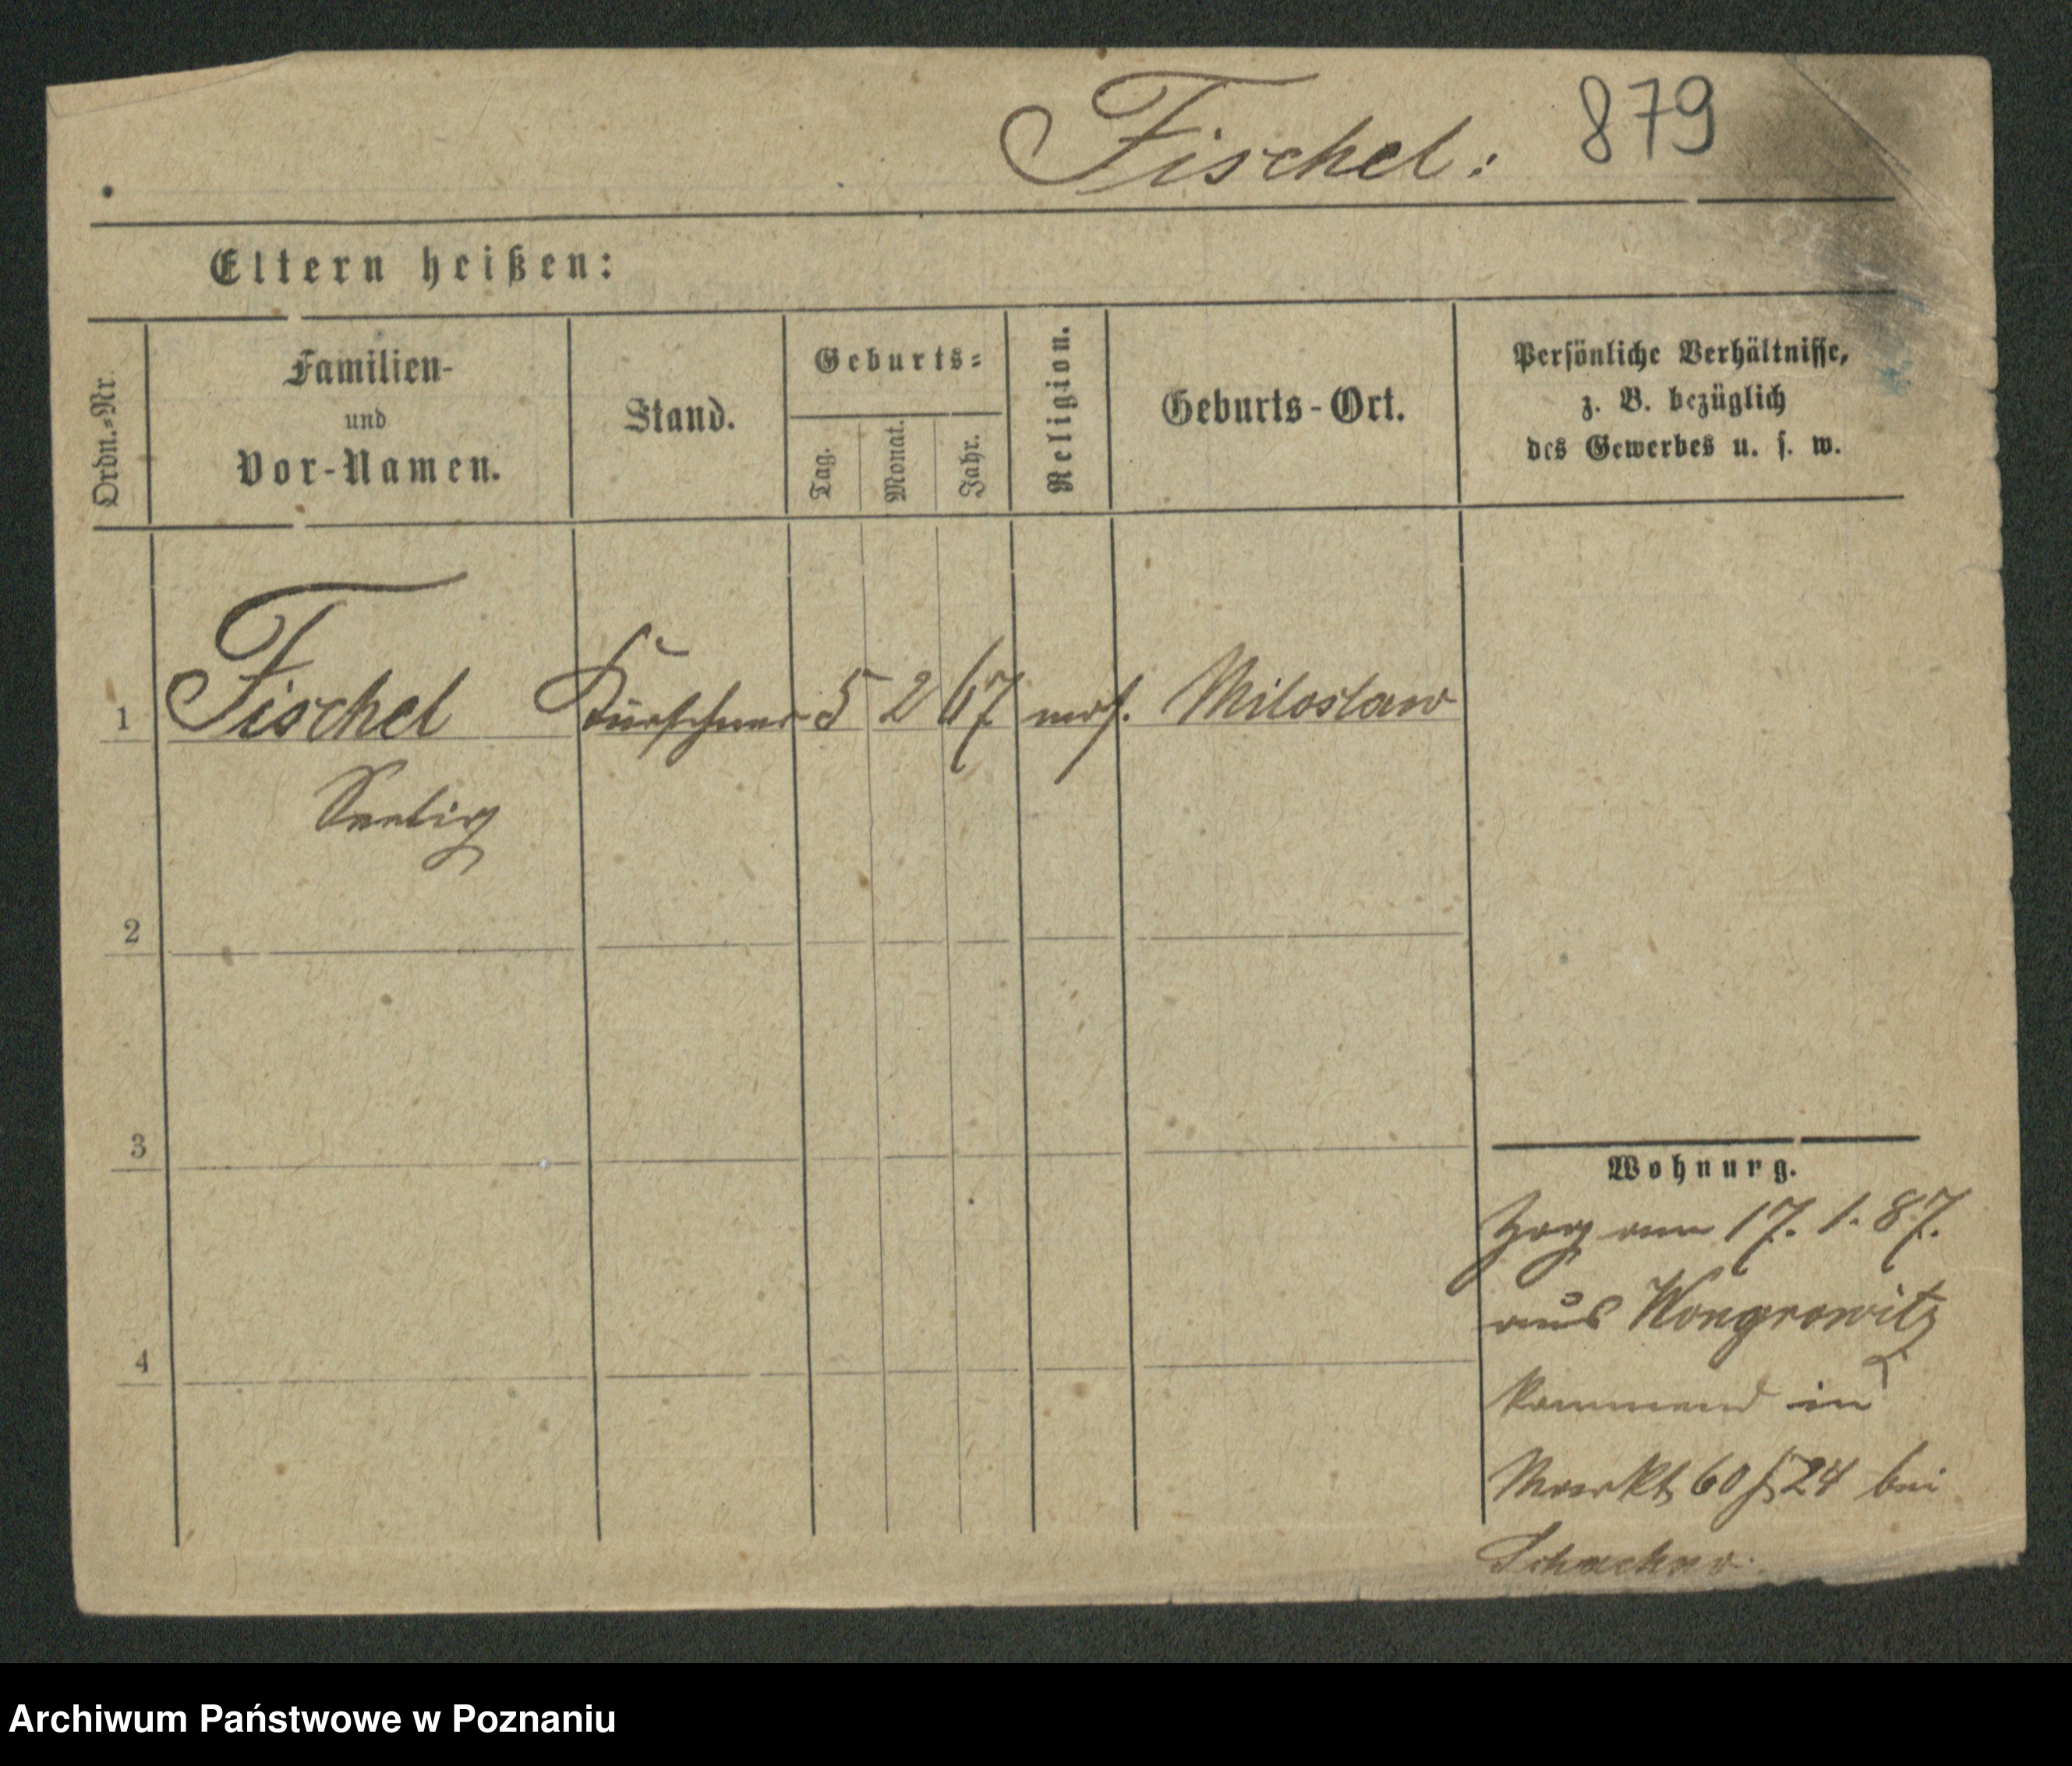 Fischel: 879
Eltern heißen:
Ordn.-Nr.
Familien-
und
Vor-Namen.
Stand.
Geburts-
Tag.
Monat.
Jahr.
Religion.
Geburts-Ort.
Persönliche Verhältnisse,
z. B. bezüglich
des Gewerbes u. s. w.
1 Fischel Kürschner 5 2 67 mos. Miloslaw
Seelig
2
3
4
Wohnung.
Zog am 17. 1. 87.
aus Wongrowitz
kommend in
Markt 60 24 bei
Archiwum Państwowe w Poznaniu